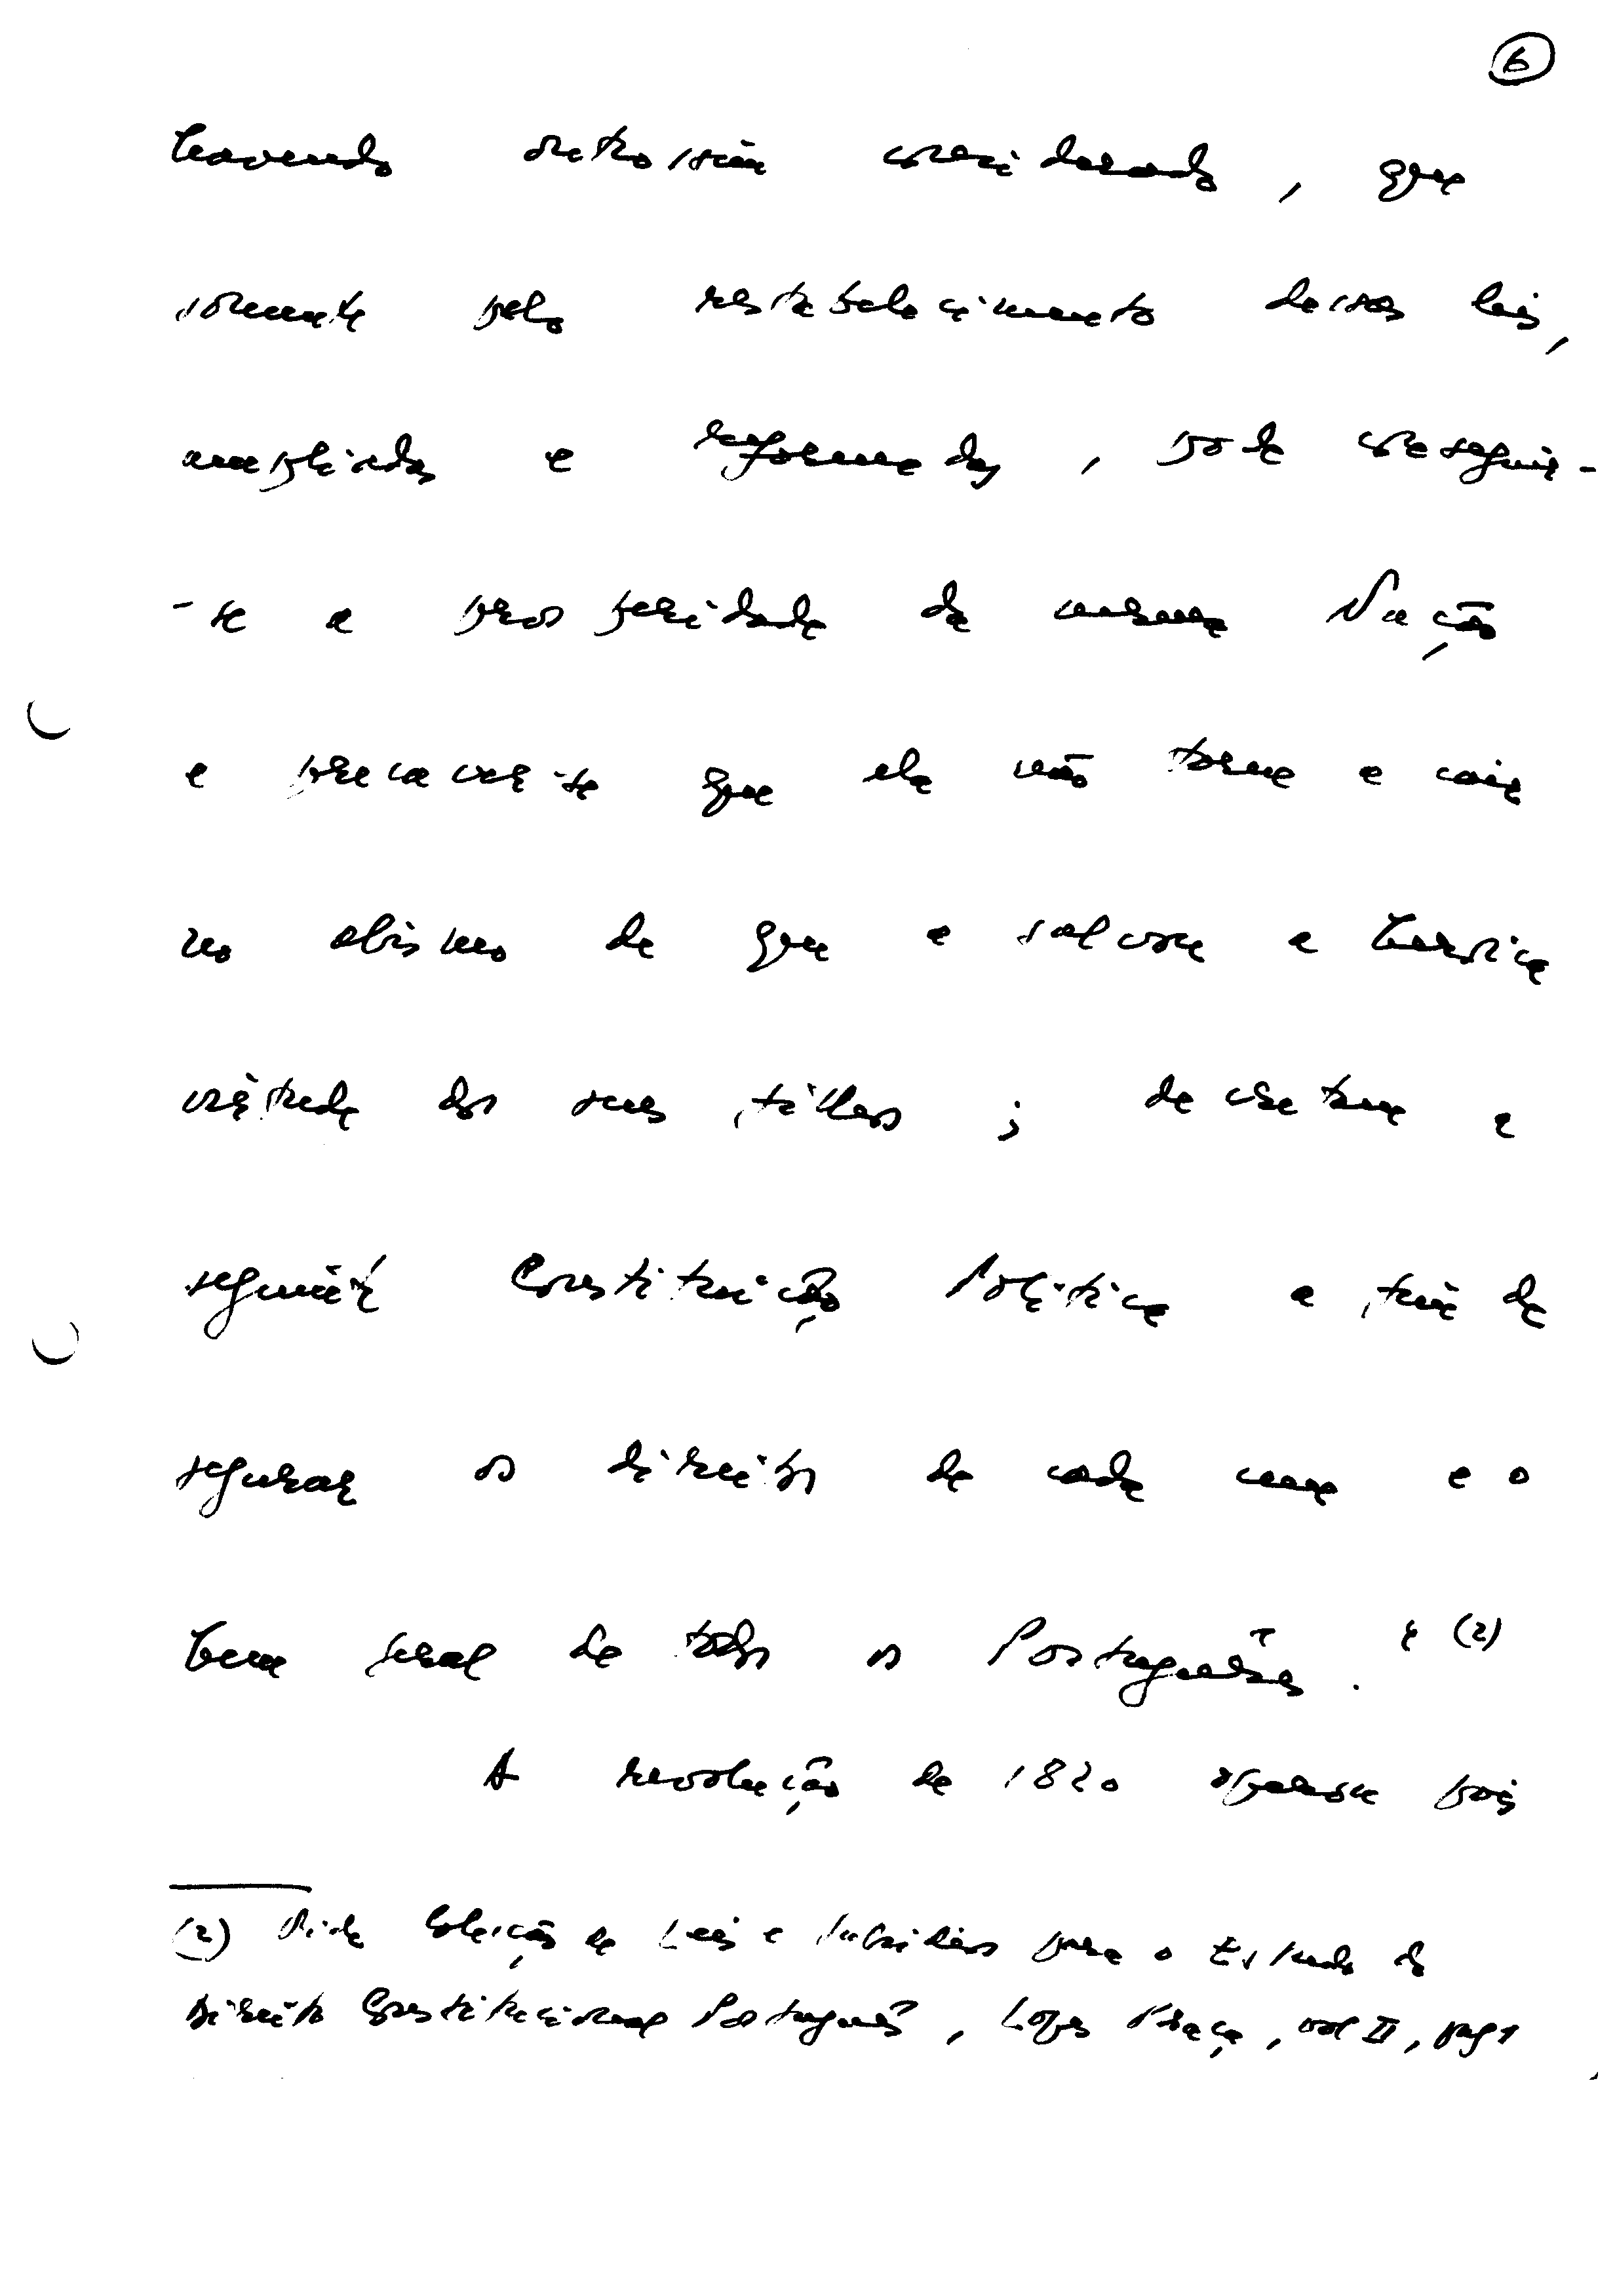 6
havendo outrossim considerado, que
somente pelo restabelecimento dessas leis,
ampliadas e reformadas, pode conseguir-
-se a prosperidade da mesma Nação
e precaver-se que ela não torne a cair
no abismo de que a salvou a heróica
virtude dos seus filhos; decretam a
seguinte Constituição Política a fim de
segurar os direitos de cada um e o
bem geral de todos os Portugueses. » (2)
A revolução de 1820 operou pois
(2) Vide Coleição de Leis e Subsídios para o Estudo do
Direito Constitucional Português, Lopes Praça, vol II, pag 1